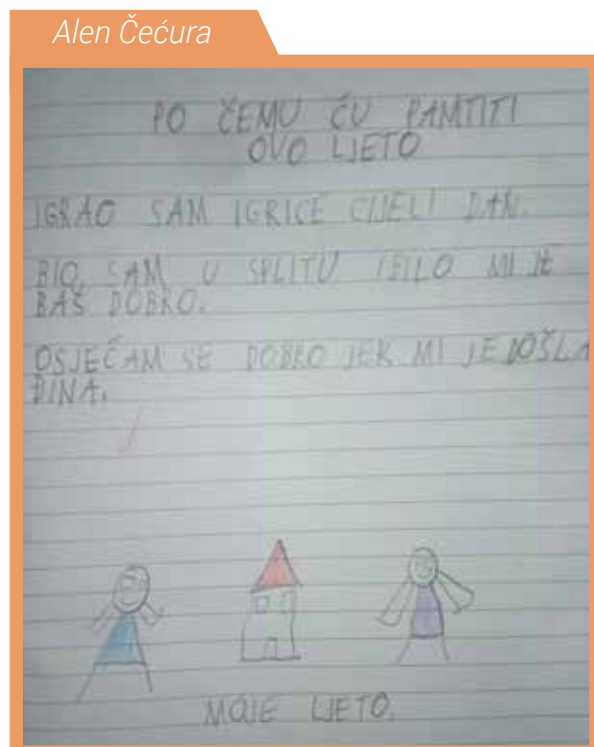 Alen Čećura
PO ČEMU ĆU PAMTITI
OVO LJETO
IGRAO SAM IGRICE CIJELI DAN.
BIO SAM U SPLITU I BILO MI JE
BAŠ DOBRO.
OSJEČAM SE DOBRO JER MI JE DOŠLA
DINA.
MOJE LJETO.